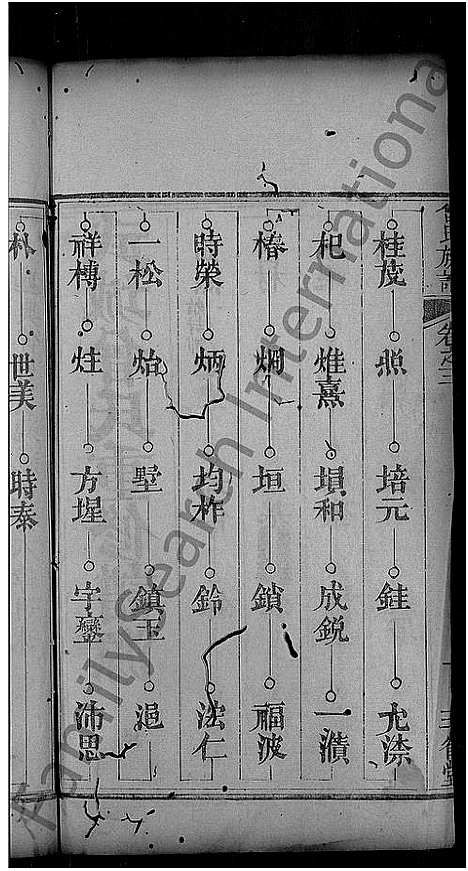 卷之三
桂茂 煕 培元 銈 尤漈
杞 煒熹 塤和 成銳 一濆
椿 烱 垣 鎖 福波
時榮 炳 均祚 鈴 法仁
一松 炲 墅 鎮玉 浥
祥槫 炷 方墀 宇鑾 沛思
朴 世美 時泰
FamilySearch International